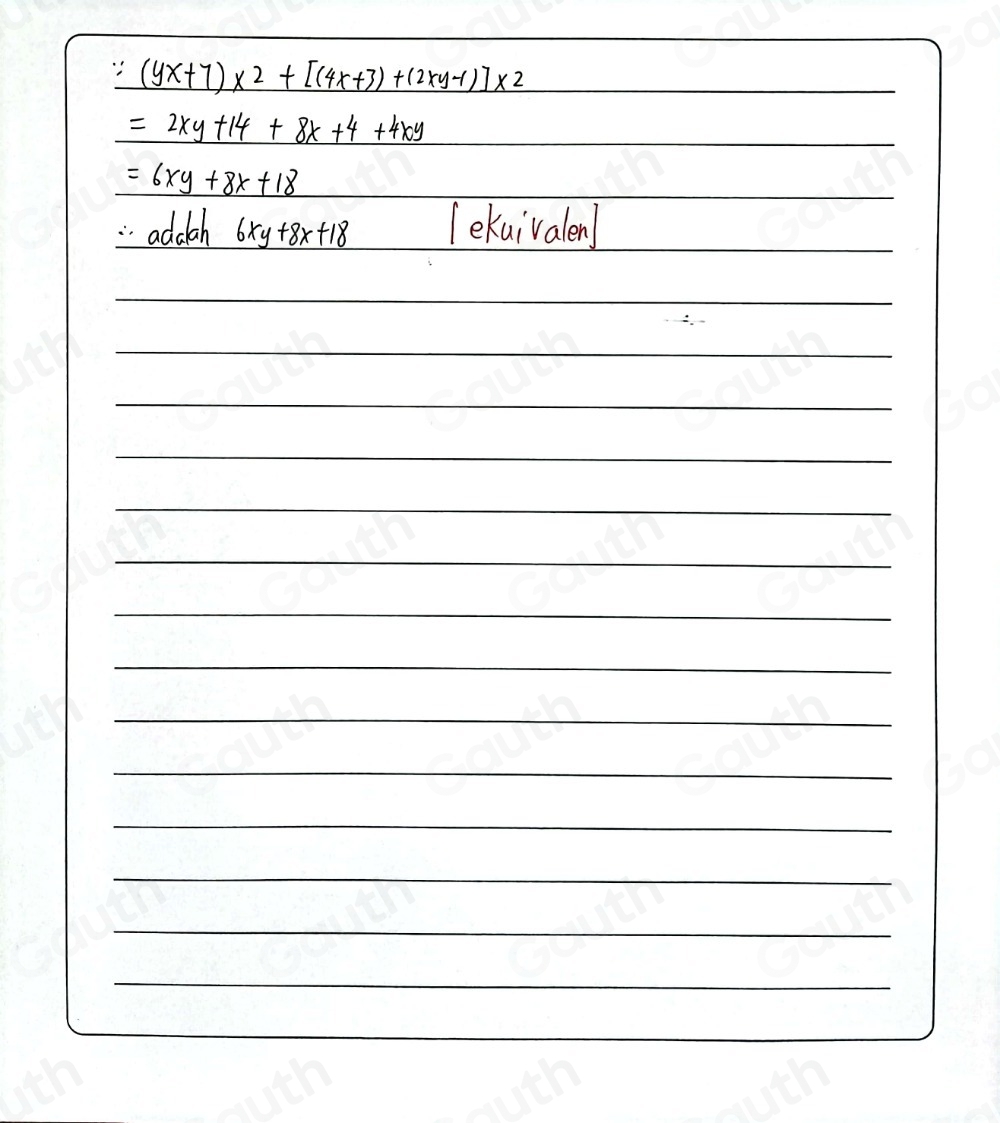 ∵ (yx+7)×2 + [(4x+3)+(2xy-1)]×2
= 2xy+14 + 8x +4 +4xy
= 6xy +8x+18
∴ adalah 6xy+8x+18 [ekuivalen]